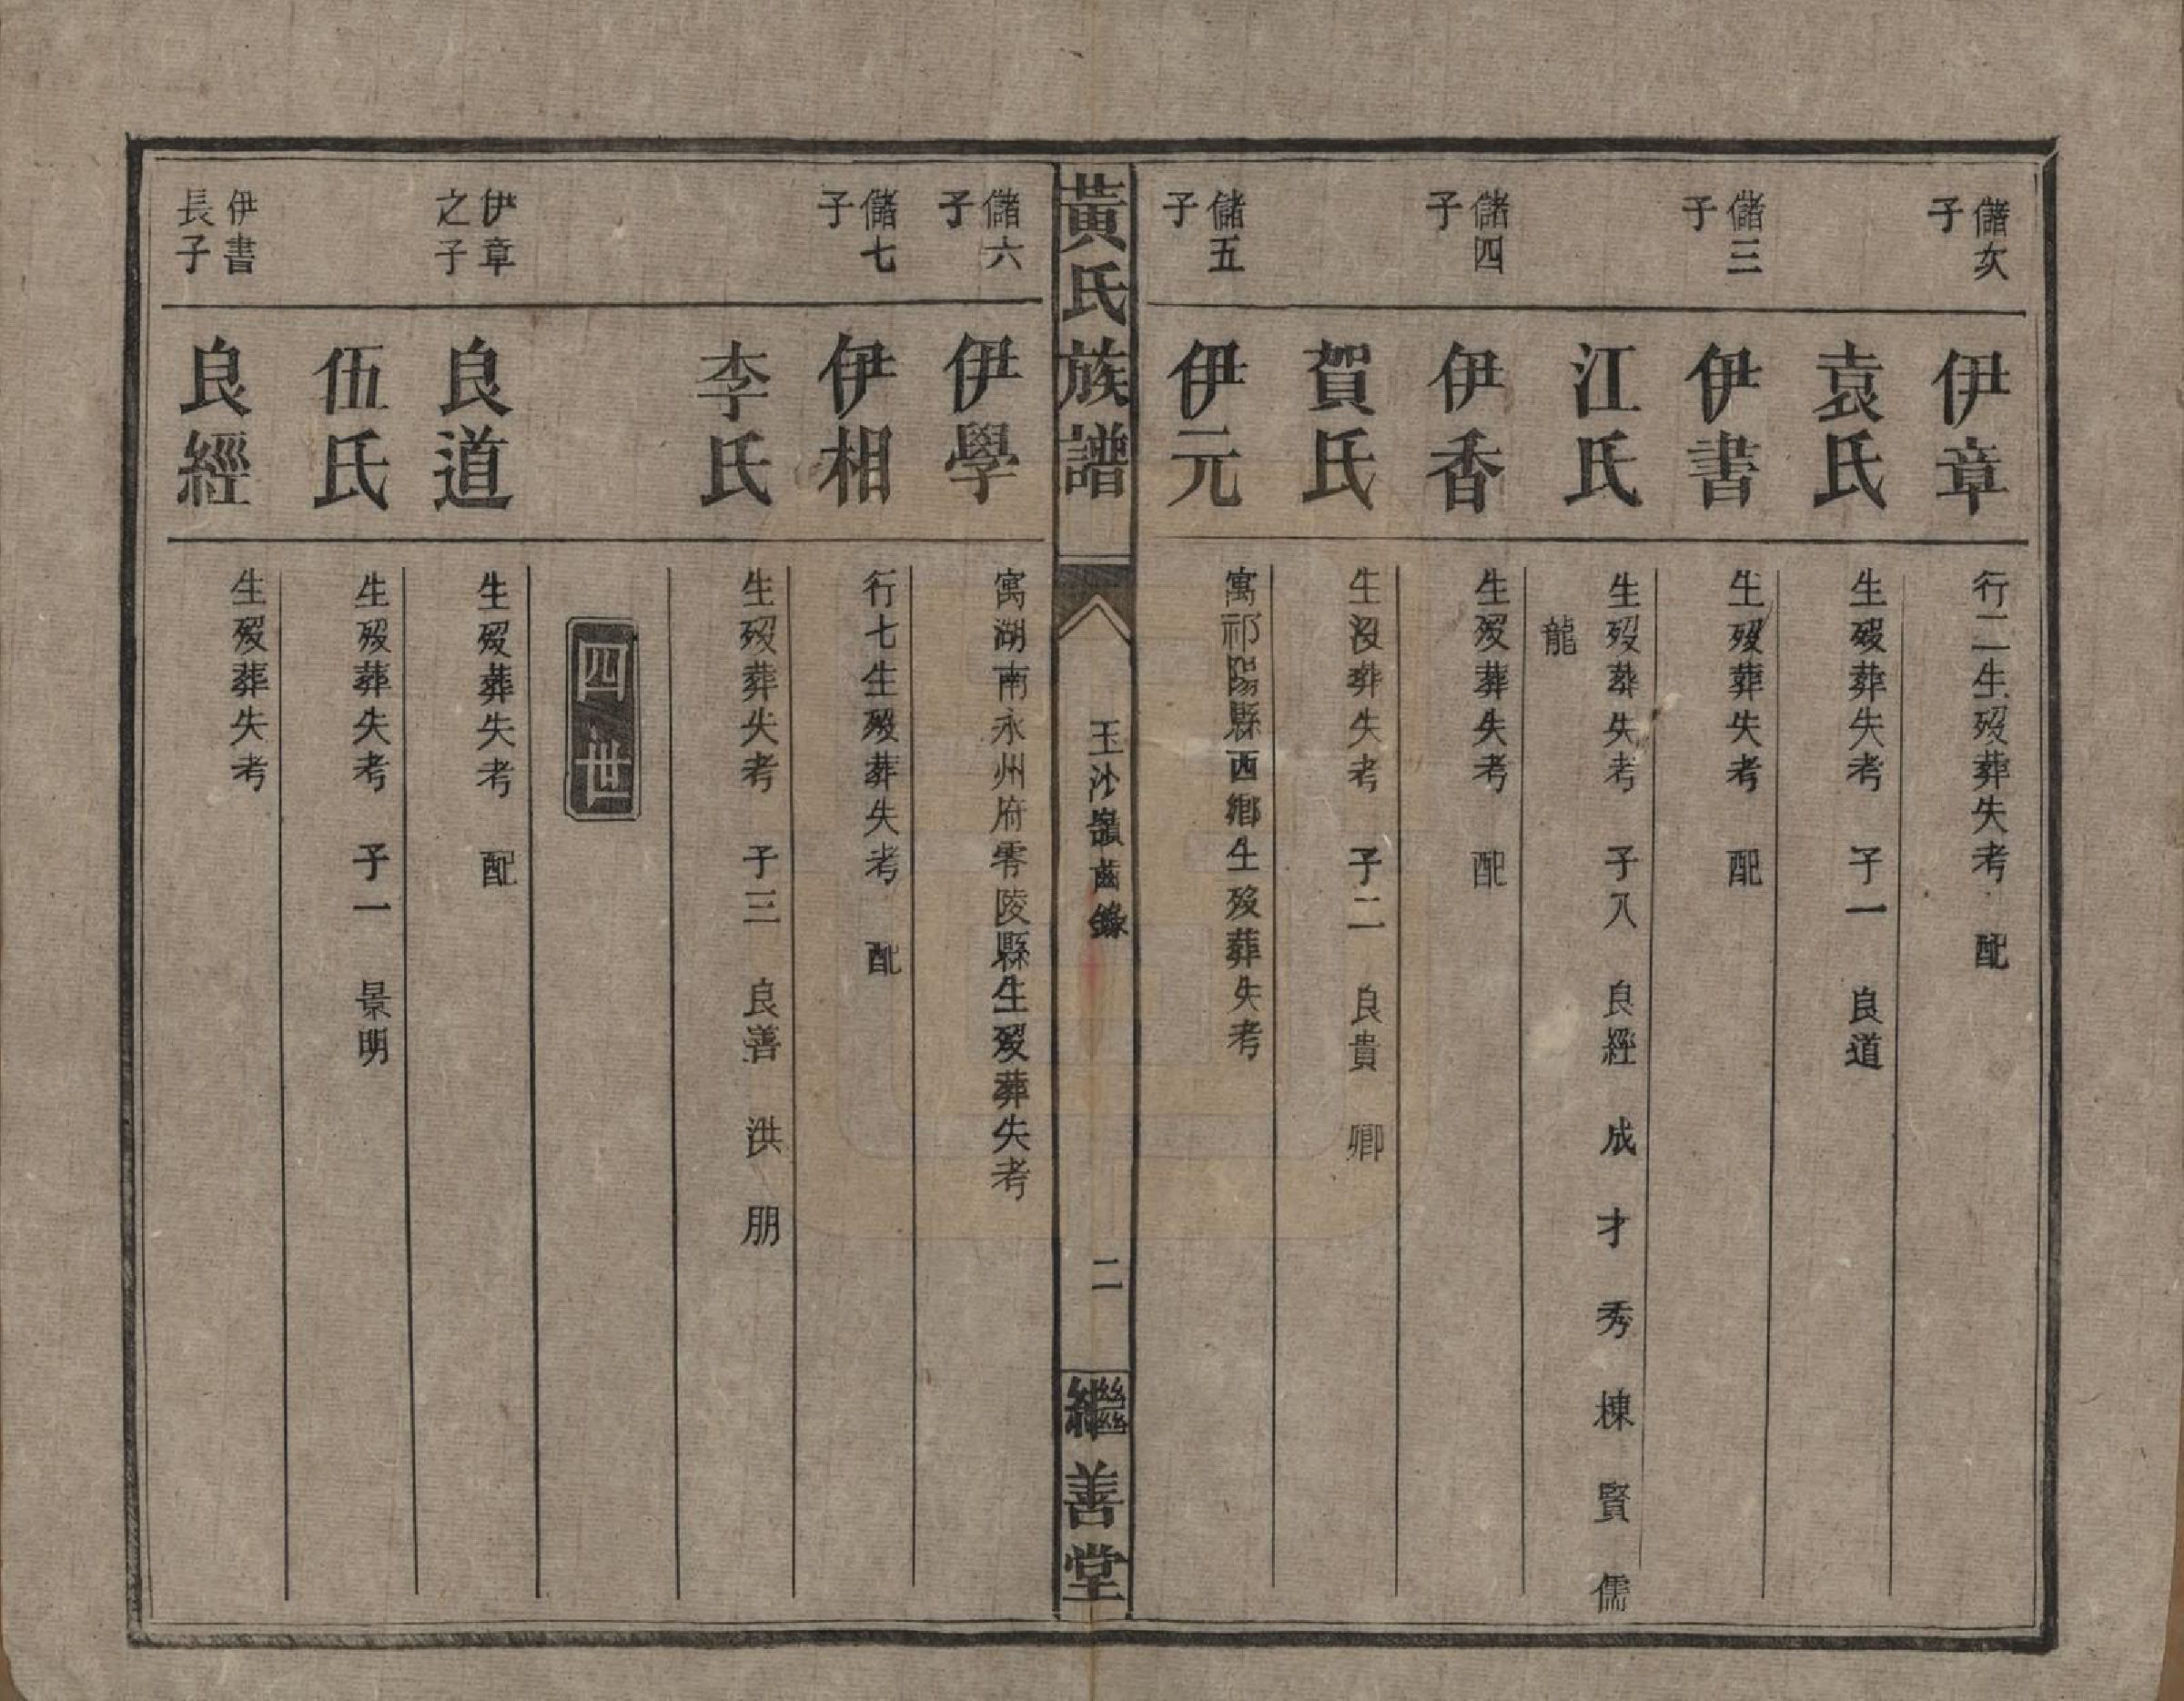 儲次子
伊章
行二生歿葬失考 配
袁氏
生歿葬失考 子一 良道
儲三子
伊書
生歿葬失考 配
江氏
生歿葬失考 子八 良經 成 才 秀 棟 賢 儒
龍
儲四子
伊香
生歿葬失考 配
賀氏
生沒葬失考 子二 良貴 卿
儲五子
伊元
寓祁陽縣西鄉生歿葬失考
黃氏族譜
玉沙嶺齒錄
二
繼善堂
儲六子
伊學
寓湖南永州府零陵縣生歿葬失考
儲七子
伊相
行七生歿葬失考 配
李氏
生歿葬失考 子三 良善 洪 朋
四世
伊章之子
良道
生歿葬失考 配
伍氏
生歿葬失考 子一 景明
伊書長子
良經
生歿葬失考